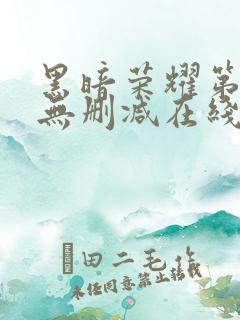 黑暗荣耀第
無删减在綫
田二毛作
未经同意禁止转载